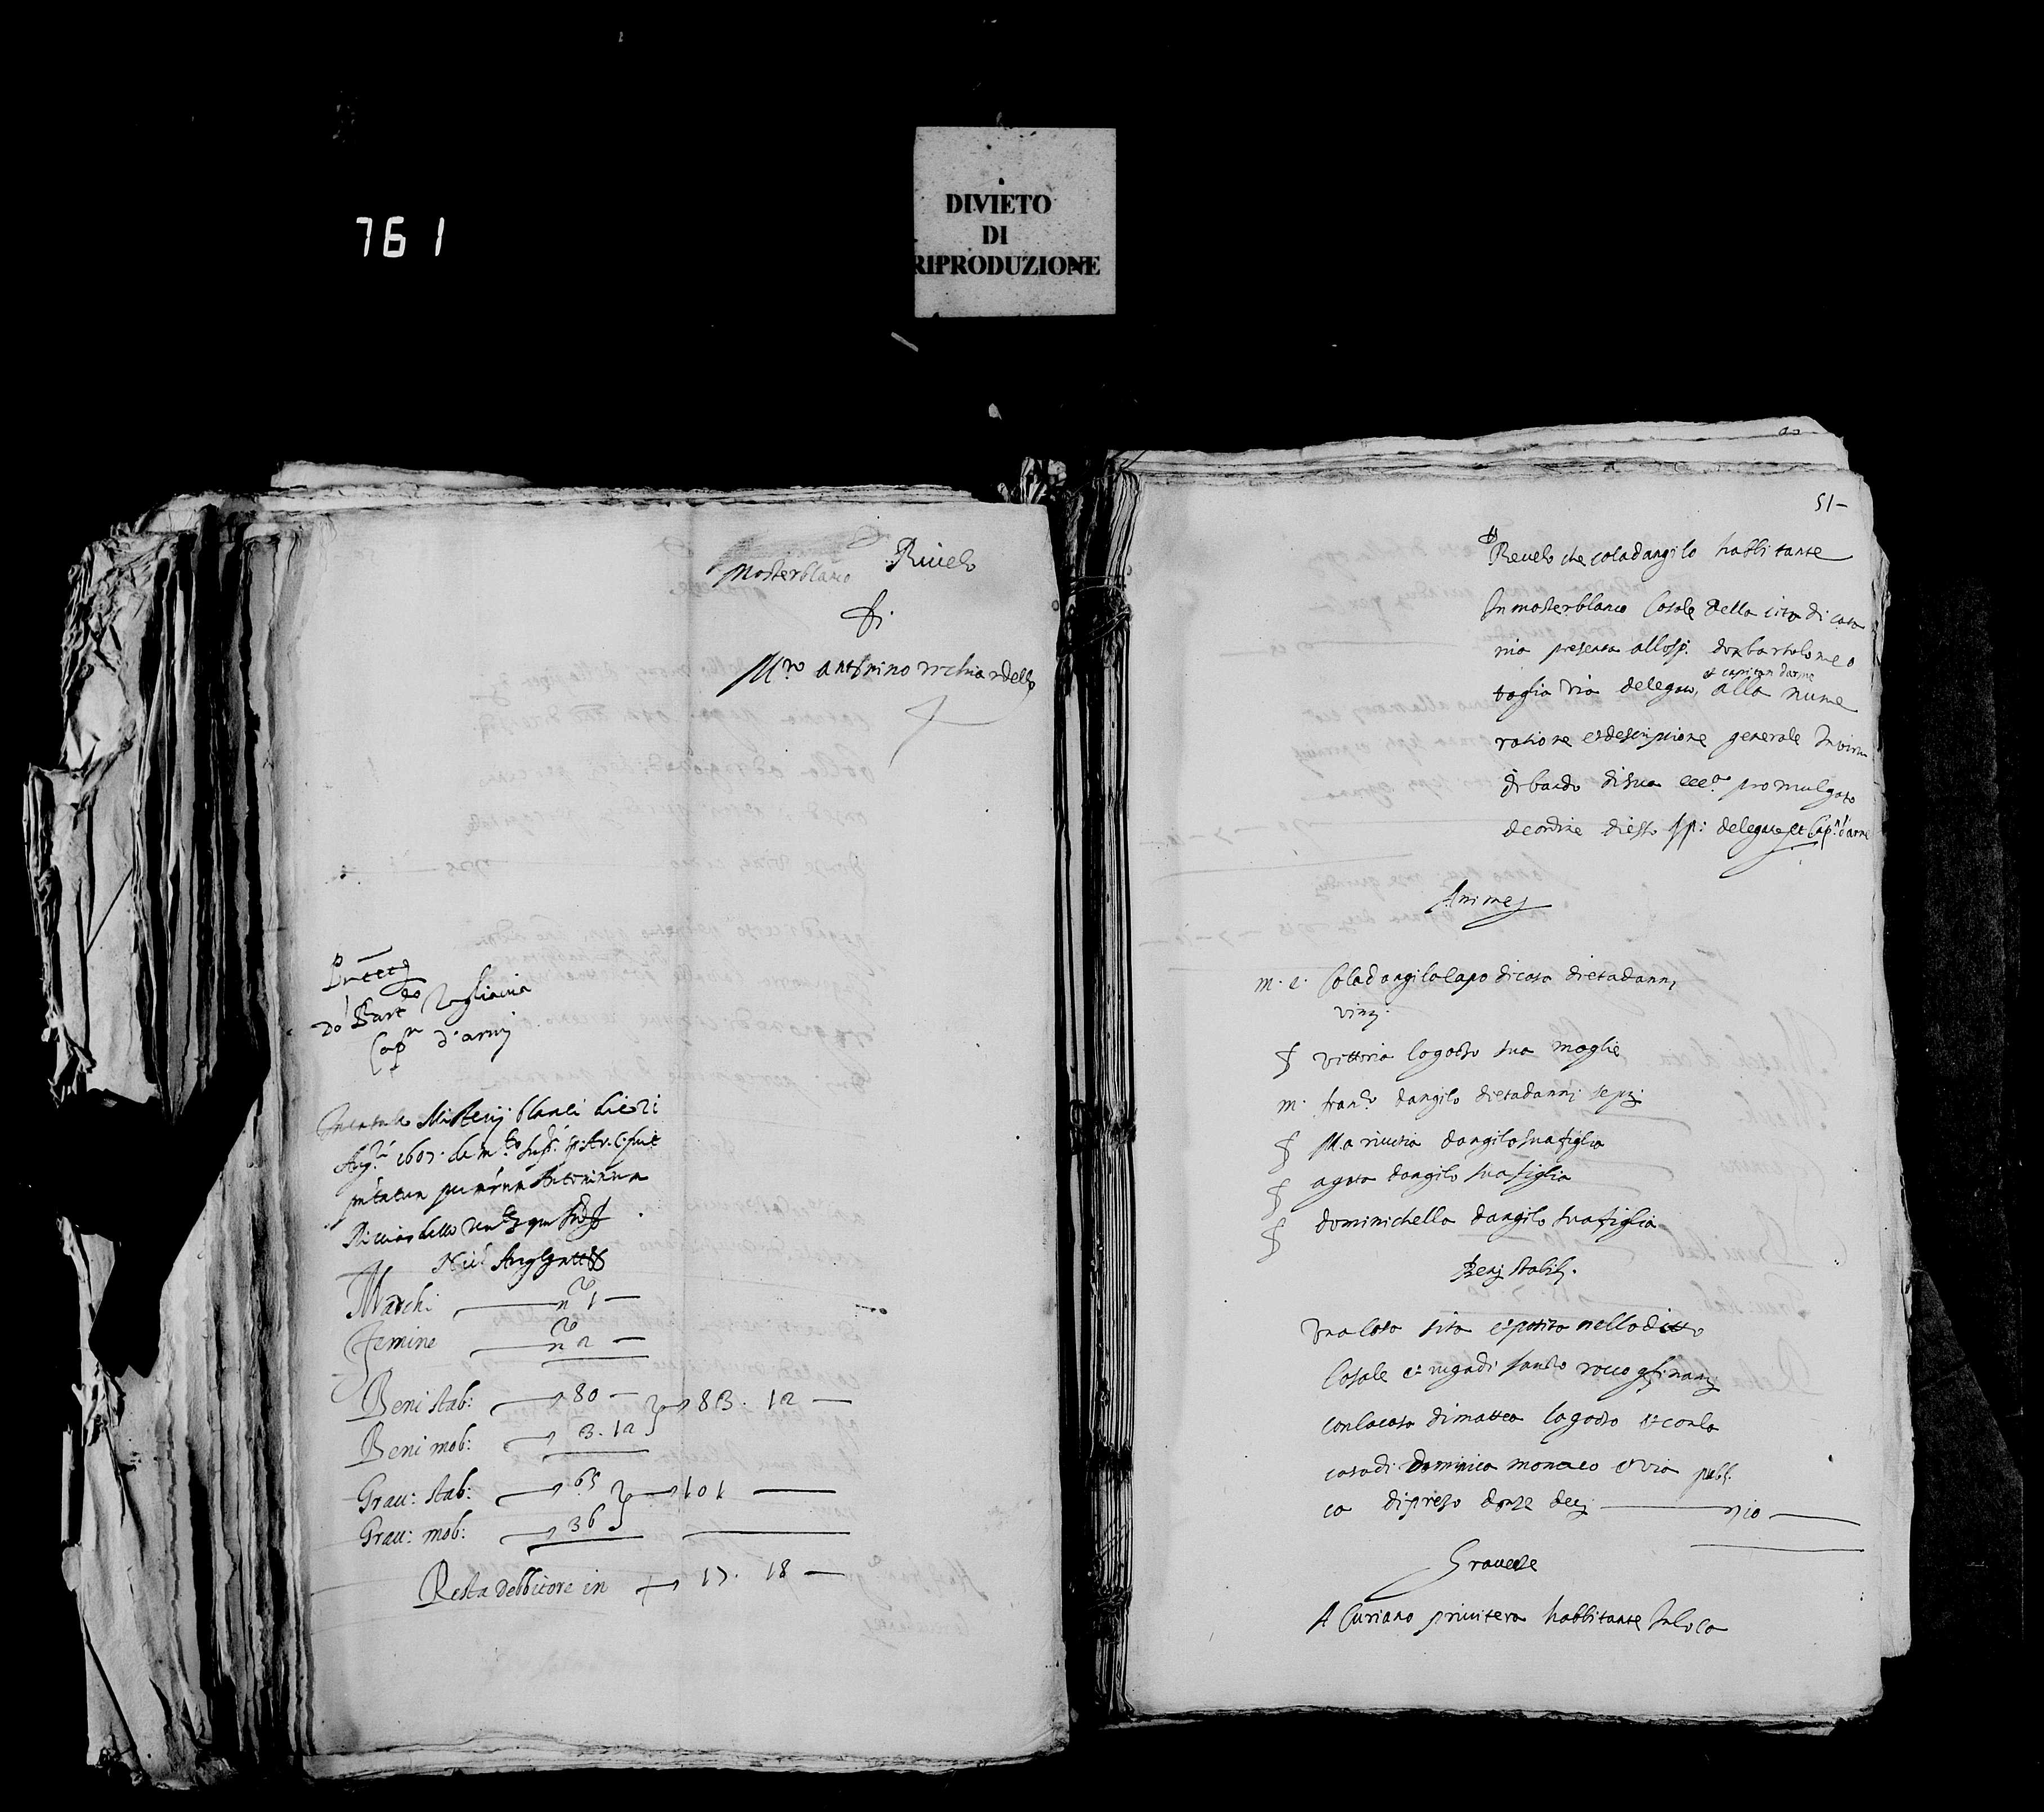 761
DIVIETO
DI
RIPRODUZIONE
Mosterblanco Rivelo
di
M.ro antonino richiardello
D. Bart.eo Tagliavia
Cap.n d'armi
Misterij blanci die 21
Aug.ti 1607
Antoninum
Ricciardello
Maschi n.ro 1
Femine n.ro 2
Beni stab: 80 83. 12
Beni mob: 3. 12
Grav: stab: 65 101
Grav: mob: 36
Resta debbitore in 17. 18
51
Revelo che cola dangilo habbitante
In mosterblanco Casale della cità di cata
nia presenta allo sp. don bartolomeo
et capitan darme
taglia via delegato, alla nume
ratione et descriptione generale In virtu
di bando di sua ecc.a promulgato
de ordine di esso sp: delegato et Cap.n d'arme
Anime
m. e. Cola dangilo capo di casa di eta danni
vinj.
f vittoria lagatto sua moglie
m. fran.co dangilo di eta danni
f Maricuzia dangilo sua figlia
f agata dangilo sua figlia
f dominichella dangilo sua figlia
Benj stabilj.
Una casa sita et posita nello ditto
Casale c.a ruga di santo rocco
con la casa di matteo lagatto et con la
casa di Dominico monaco et via publi
ca di prezo donze decj 10
Gravezze
A Curiano privitera habbitante In loco